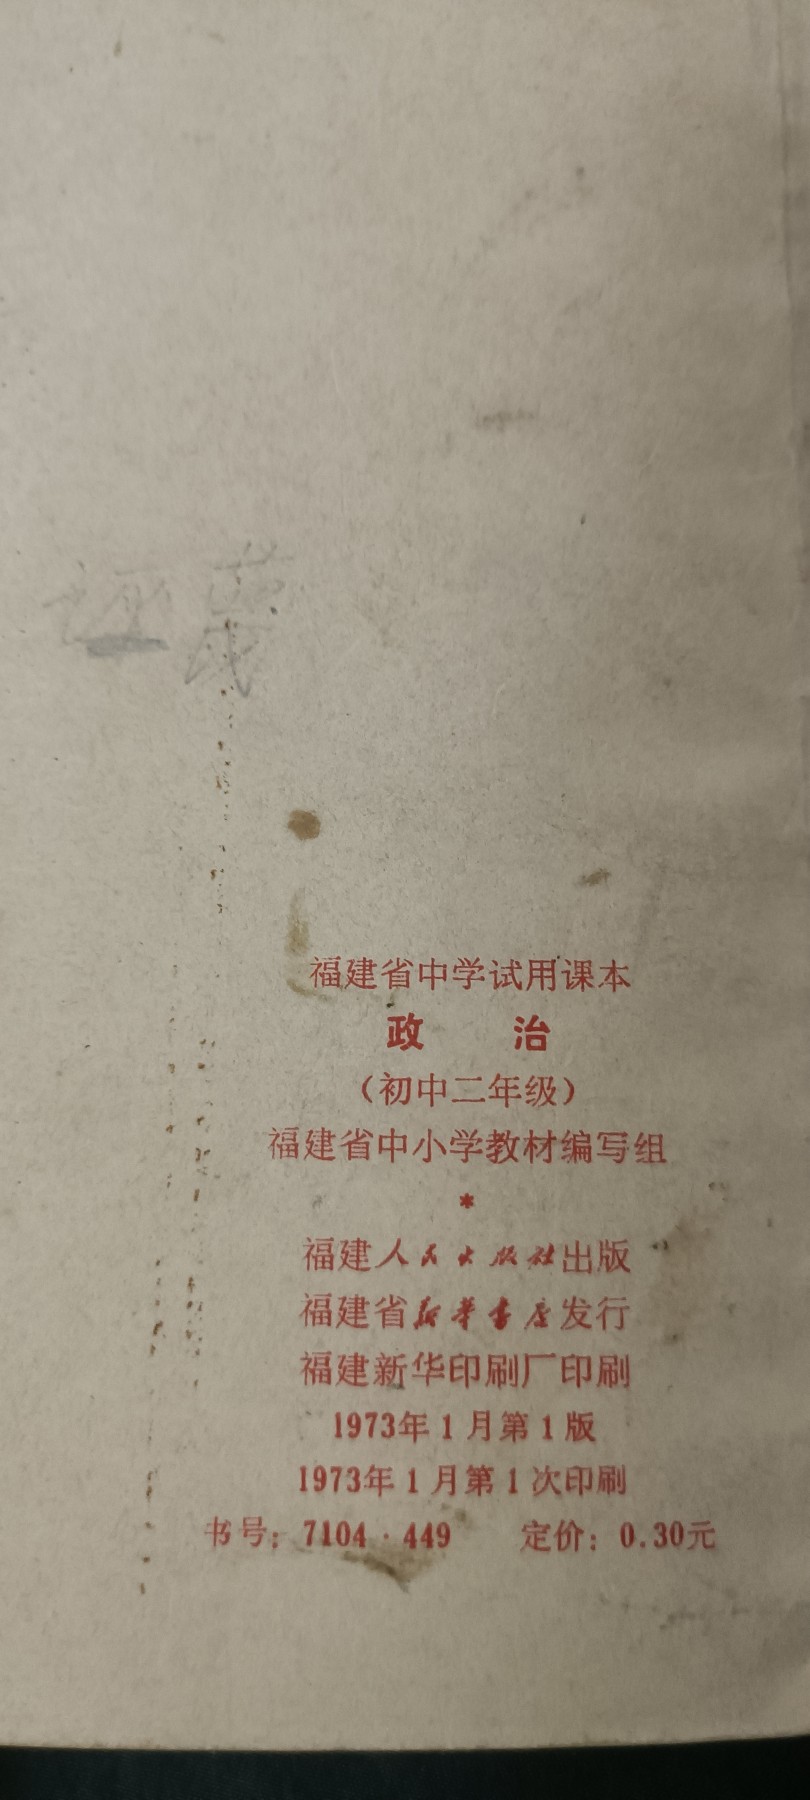 福建省中学试用课本
政 治
（初中二年级）
福建省中小学教材编写组
*
福建人民出版社出版
福建省新华书店发行
福建新华印刷厂印刷
1973年1月第1版
1973年1月第1次印刷
书号：7104·449 定价：0.30元